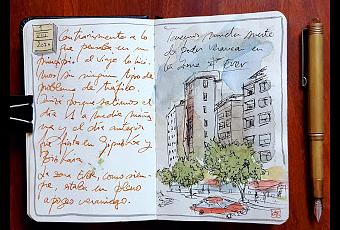 Contrariamente a lo
que pensaba en un
principio el viaje lo hici
mos sin ningún tipo de
problema de tráfico.
Quizá porque salimos el
día 1 a media maña
na y el día anterior
fue fiesta en Gipuzkoa y
Bizkaia.
La zona Ever, como siem
pre, estaba en pleno
apogeo veraniego.
Tuvimos mucha suerte
de poder
en
la zona Ever